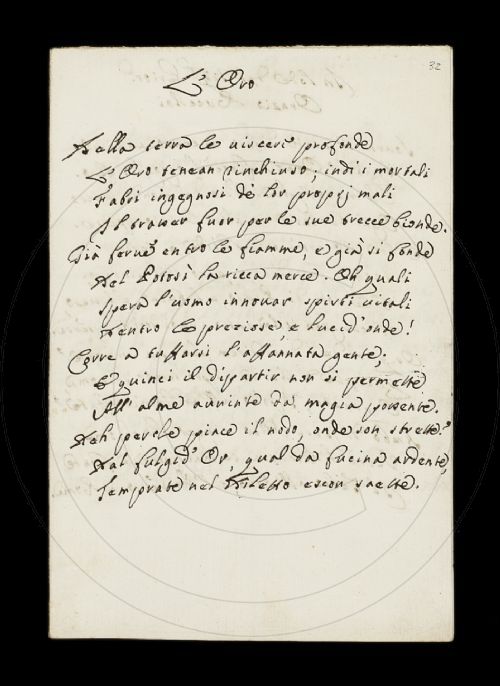 32
L'Oro
Della terra le viscere profonde
L'Oro tenean rinchiuso; indi i mortali
Fabri ingegnosi dè lor proprj mali
Il trasser fuor per le sue trecce bionde.
Già ferve entro le fiamme, e già si fonde
Del Potosì la ricca merce. Oh quali
Spera l'uomo innovar spirti vitali
Dentro le preziose, e lucid'onde!
Corre a tuffarsi l'affannata gente;
E quinci il dipartir non si permette
All'alme avvinte da magia possente.
Deh perche piace il nodo, onde son strette?
Dal fulgid'Or, qual da fucina ardente,
Temprate nel diletto escon saette.